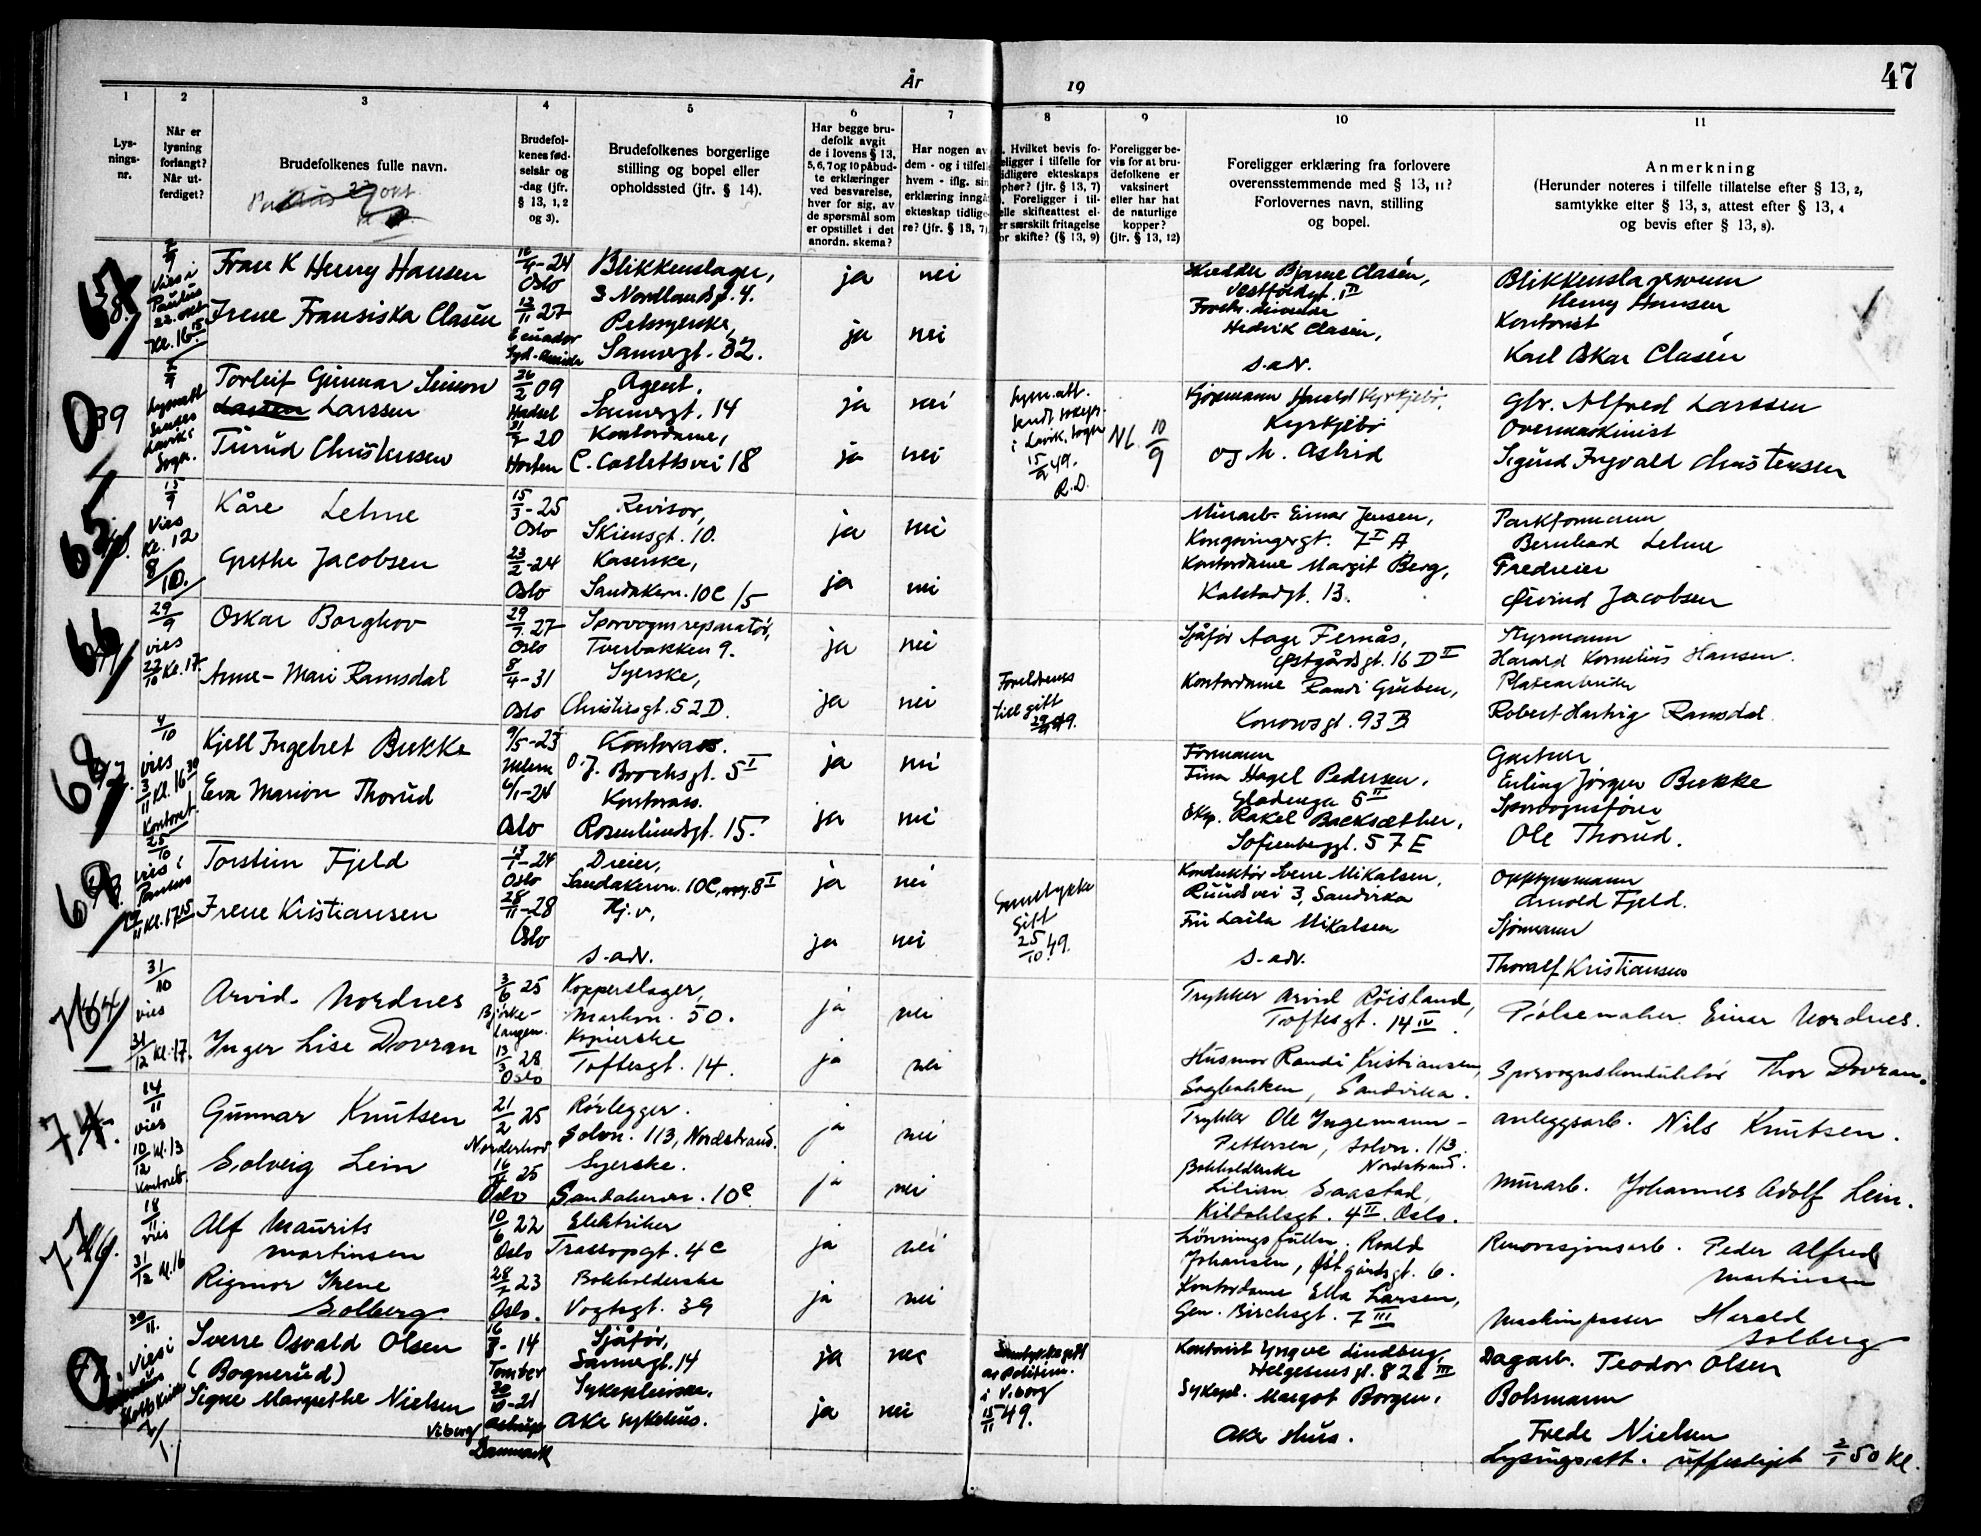 År
19
47
1
2
3
4
5
6
7
8
9
10
11
Lys-
nings-
nr.
Når er
lysning
forlangt?
Når ut-
ferdiget?
Brudefolkenes fulle navn.
Brudefol-
kenes fød-
selsår og
-dag (jfr.
§ 13, 1, 2
og 3).
Brudefolkenes borgerlige
stilling og bopel eller
opholdssted (jfr. § 14).
Har begge bru-
defolk avgit
de i lovens § 13,
5, 6, 7 og 10 påbud-
te erklæringer
ved besvarelse,
hver for sig, av
de spørsmål som
er opstillet i det
anordn. skema?
Har nogen av
dem - og i tilfel
hvem - iflg. sin
erklæring inngå
ekteskap tidlige
re? (jfr. § 13, 7)
Hvilket bevis fo-
eligger i tilfelle for
idligere ekteskaps
phør? (jfr. § 13, 7)
Foreligger i til-
elle skifteattest el-
er særskilt fritagelse
or skifte? (§ 13, 9)
Foreligger be-
vis for at bru-
defolkene er
vaksinert
eller har hat
de naturlige
kopper?
(jfr. § 13, 12)
Foreligger erklæring fra forlovere
overensstemmende med § 13, 11?
Forlovernes navn, stilling
og bopel.
Anmerkning
(Herunder noteres i tilfelle tillatelse efter § 13, 2,
samtykke efter § 13, 3, attest efter § 13, 4
og bevis efter § 13, 8).
2/9
Vies i
Paulus
22. okt.
Kl. 16 15
Henry Hansen
-24
Oslo
Blikkenslager,
3 Nordlandsgt. 4.
ja
nei
Bjarne Clasén,
Vestfoldgt. 1 II
Blikkenslagersvenn
Henry Hansen
Irene Fransiska Clasén
13/11 27
Ecuador
Syd-
Sannergt. 32.
ja
nei
Hedvik Clasén,
s. adr.
Kontorist
Karl Oskar Clasén
39
Torleif Gunnar Simon
Larssen
26/2 09
Hadsel
Agent,
Sannergt. 14
ja
nei
Lysn. att.
15/2 49.
R.D.
10/9
Harald Kyrkjebø,
Kyrkjebø
Alfred Larssen
Overmaskinist
Turid Christensen
20
Horten
Kontordame,
C. Collettsvei 18
ja
nei
og M. Astrid
Sigurd Ingvald Christensen
65
15/9
Vies
Kl. 12
8/10.
Kåre Lehne
15/3-25
Oslo
Revisor,
Skiensgt. 10.
ja
nei
Murarb. Einar Jensen,
Kongsvingergt. 7 I A
Parkformann
Bernhard Lehne
Grethe Jacobsen
23/2-24
Oslo
Kaserske,
Sandakerv. 10C/5
ja
nei
Kontordame Margit Berg,
Kalstadgt. 13.
Øivind Jacobsen
66
29/9
vies
22/10 kl. 17.
Oskar Borghov
29/9. 27
Oslo
Sporvognsreparatør,
Tverbakken 9.
ja
nei
Sjåfør Aage Fernås,
Østgårdsgt. 16 D II
Styrmann
Harald Kornelius Hansen.
Anne-Mari Ramsdal
8/4-31
Oslo
Syerske,
Christiesgt. 52 D.
ja
nei
Foreldrenes
till gitt
29/9 49.
Kontordame Randi Gruben,
Konowsgt. 93 B
Platearbeider
Robert Hartvig Ramsdal.
68
4/10
vies
3/11 kl. 16 30
Kontoret.
Kjell Ingebret Bukke
9/5-23
Kontorass.
O. J. Brochsgt. 5 I
ja
nei
Formann
Finn Hagel Pedersen,
Gladenga 5 II
Gartner
Erling Jørgen Bukke
Eva Marion Thorud
6/1-24
Oslo
Kontorass.
Rosenlundsgt. 15.
ja
nei
Eksp. Rakel Backsæther,
Sofienberggt. 57 E
Sporvognsfører
Ole Thorud.
69
25/10
vies i
Paulus
kl. 17 15
Torstein Fjeld
-24
Oslo
Dreier,
Sandakervn. 10C, oppg. 8 I
ja
nei
Samtykke
gitt
25/10 49.
Konduktør Sverre Mikalsen,
Ruudsvei 3, Sandvika
Oppsynsmann
Arnold Fjeld.
Irene Kristiansen
28/11-28
Oslo
Hj. v,
s. adr.
ja
nei
Fru Laila Mikalsen
s. adr.
Sjømann
Thoralf Kristiansen
31/10
vies
31/12 kl. 17.
Arvid Nordnes
3/6 25
Bjørke-
langen.
Kopperslager,
Markvn. 50.
ja
nei
Trykker Arvid Röisland,
Toftesgt. 14 IV.
Pölsemaker Einar Nordnes.
Inger Lise Dovran
13/3 28
Oslo
Kopierske
Toftesgt. 14.
ja
nei
Husmor Randi Kristiansen,
Sagbakken, Sandvika.
Sporvognskonduktør Thor Dovran.
74.
14/11
vies
10/12 kl. 13
Kontoret.
Gunnar Knutsen
21/2 25
Norderhov
Rörlegger.
Solvn. 113, Nordstrand.
ja
nei
Trykker Ole Ingemann-
Pettersen, Solvn. 113
Nordstrand.
Anleggsarb. Nils Knutsen.
Solveig Lein
25
Oslo
Syerske.
Sandakervn. 10C
ja
nei
Bokholderske
Lilian Saastad,
Kildahlsgt. 4 II. Oslo.
Murarb. Johannes Adolf Lein.
18/11
vies
31/12 kl. 16
Alf Maurits
Martinsen
10/6 22
Oslo
Elektriker
Trassopgt. 4C
ja
nei
Lönningsfullm. Roald
Johansen, Östgårdsgt. 6.
Renovasjonsarb. Peder Alfred
Martinsen
Rigmor Irene
Solberg.
23
Oslo.
Bokholderske
Vogtsgt. 39
ja
nei
Kontordame Ella Larsen,
Gen. Birchsgt. 7 III
Maskinpasser Harald
Solberg
30/11.
Vies i
2/1
Sverre Osvald Olsen
(Bognerud)
14
Sjåfør,
Sannergt. 14
ja
nei
Samtykke gitt
av politim.
i Viborg
15/11 49.
Kontorist Yngve Lindberg,
Helgesensgt. 82 III
Dagarb. Teodor Olsen
Signe Margrethe Nielsen
Viborg
-21
Danmark
Sykepleierske,
Aker sykehus.
ja
nei
Sykepl. Margot Borgen,
Aker shus.
Bolsmann
Frede Nielsen
Lysingsatt. utferdiget 2/1 50 Kl.